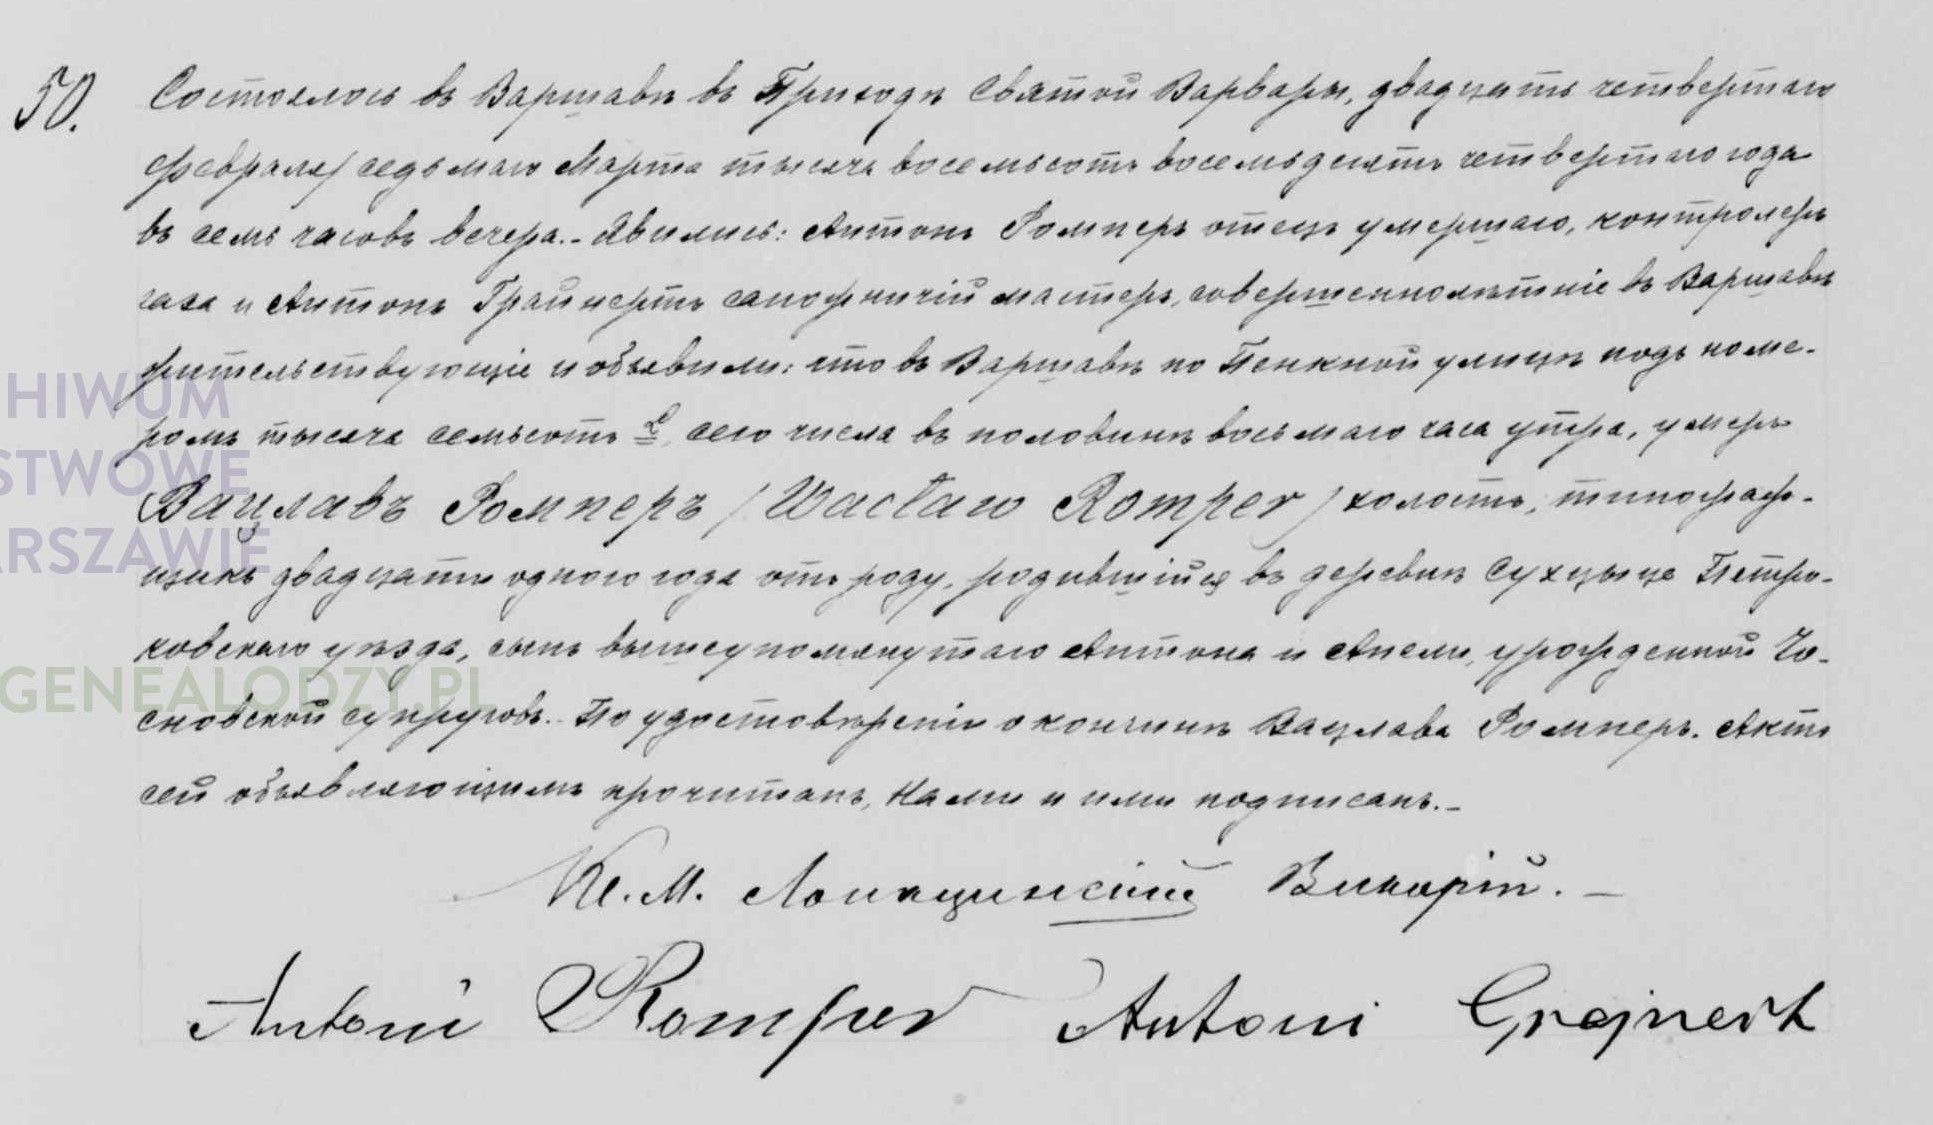 50. Состоялось въ Варшавѣ въ Приходѣ Святой Варвары, двадцать четвертаго
февраля/ седьмаго Марта тысяча восемьсотъ восемьдесятъ четвертаго года
въ семь часовъ вечера.- Явились: Антонъ Ромперъ отецъ умершаго, контролеръ
газа и Антонъ Грайнертъ сапожничій мастеръ, совершеннолѣтніе въ Варшавѣ
жительствующіе и объявили: что въ Варшавѣ по Пенкной улицѣ подъ номе-
ромъ тысяча семьсотъ сего числа въ половинѣ восьмаго часа утра, умеръ
Вацлавъ Ромперъ /Wacław Romper/ холостъ, типограф-
щикъ двадцати одного года отъ роду, родившійся въ деревнѣ Сухцице Петро-
ковскаго уѣзда, сынъ вышеупомянутаго Антона и Анели, урожденной Чо-
сновской супруговъ.- По удостовѣреніи о кончинѣ Вацлава Ромперъ. Актъ
сей объявляющимъ прочитанъ, Нами и ими подписанъ.-
Кс. М. Викарій.-
Antoni Romper Antoni Grajnert
HIWUM
STWOWE
ARSZAWIE
GENEALODZY.PL